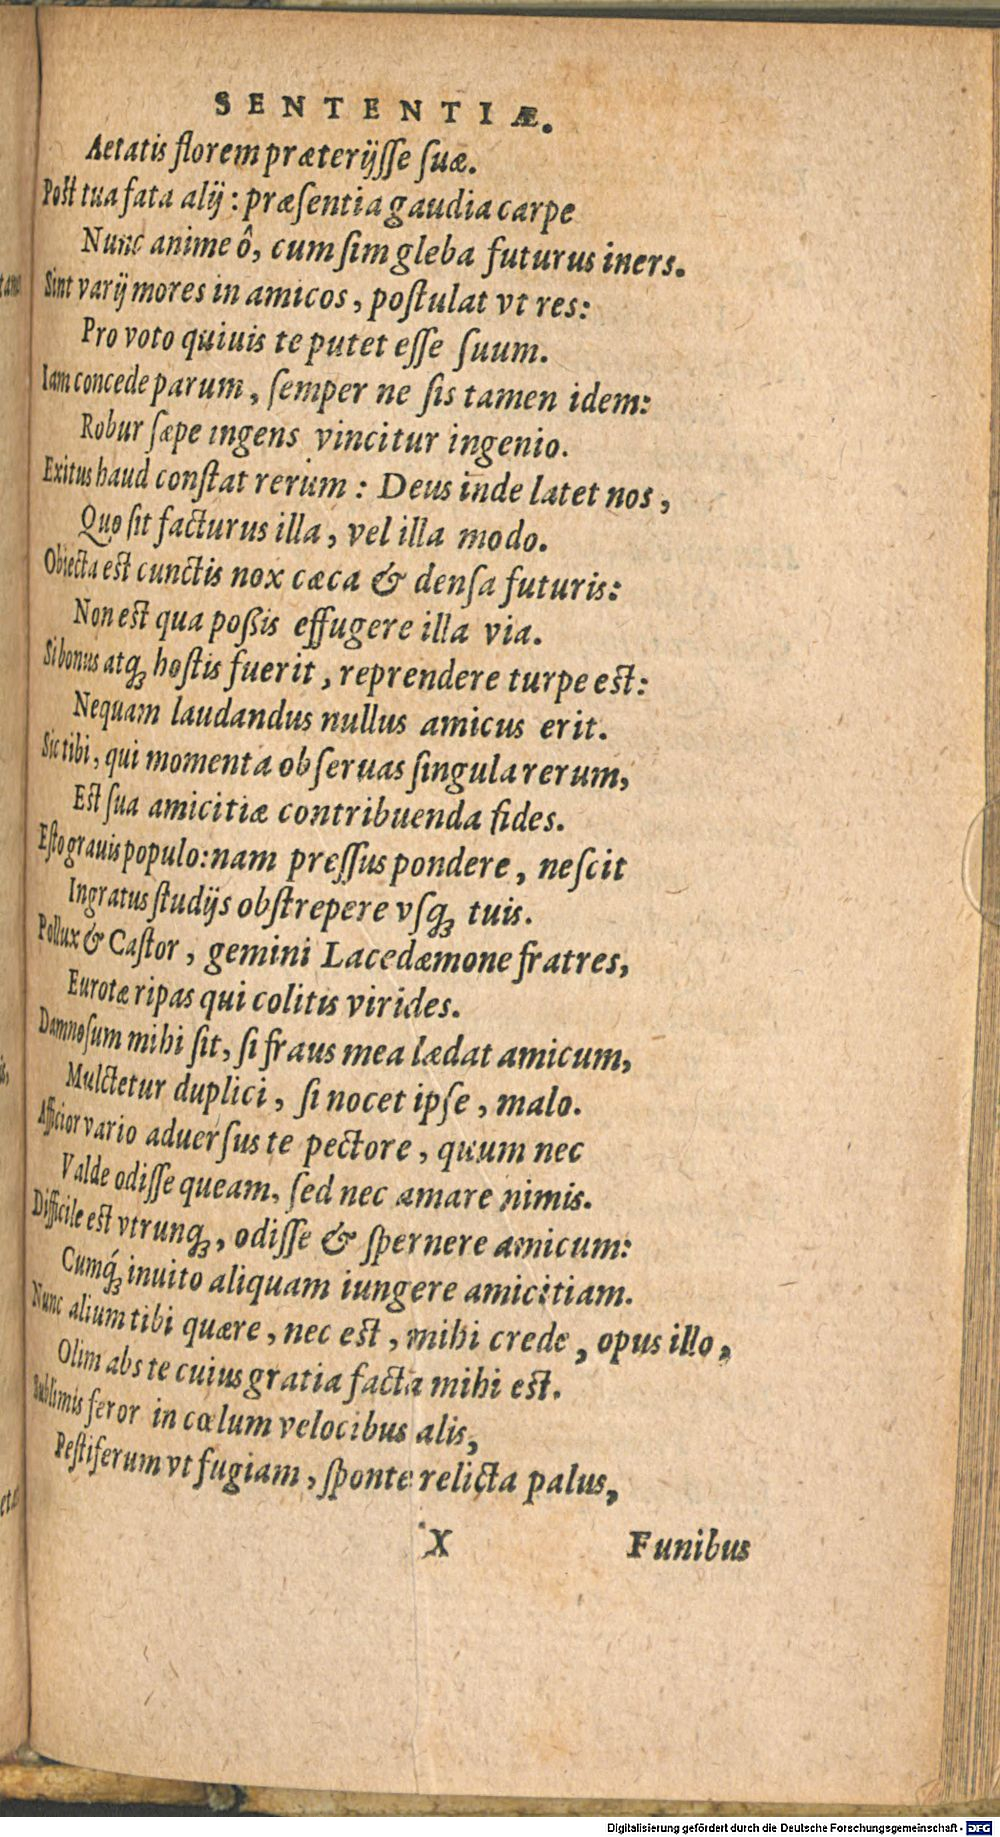 SENTENTIÆ.
Aetatis florem præterijſſe ſuæ.
Poſt tua fata alij: præſentia gaudia carpe
Nunc anime ô, cum ſim gleba futurus iners.
Sint varij mores in amicos, poſtulat vt res:
Pro voto quiuis te putet eſſe ſuum.
Iam concede parum, ſemper ne ſis tamen idem:
Robur ſæpe ingens vincitur ingenio.
Exitus haud conſtat rerum: Deus inde latet nos,
Quo ſit facturus illa, vel illa modo.
Obiecta eſt cunctis nox cæca & denſa futuris:
Non eſt qua poßis effugere illa via.
Si bonus atq; hoſtis fuerit, reprendere turpe eſt:
Nequam laudandus nullus amicus erit.
Sic tibi, qui momenta obſeruas ſingula rerum,
Eſt ſua amicitiæ contribuenda fides.
Eſto grauis populo: nam preſſus pondere, neſcit
Ingratus ſtudijs obſtrepere vſq; tuis.
Pollux & Caſtor, gemini Lacedæmone fratres,
Eurotæ ripas qui colitis virides.
Damnoſum mihi ſit, ſi fraus mea lædat amicum,
Mulctetur duplici, ſi nocet ipſe, malo.
Afficior vario aduerſus te pectore, quum nec
Valde odiſſe queam, ſed nec amare nimis.
Difficile eſt vtrunq;, odiſſe & ſpernere amicum:
Cumq́; inuito aliquam iungere amicitiam.
Nunc alium tibi quære, nec eſt, mihi crede, opus illo,
Olim abs te cuius gratia facta mihi eſt.
Sublimis feror in cœlum velocibus alis,
Peſtiferum vt fugiam, ſponte relicta palus,
X Funibus
Digitalisierung gefördert durch die Deutsche Forschungsgemeinschaft - DFG